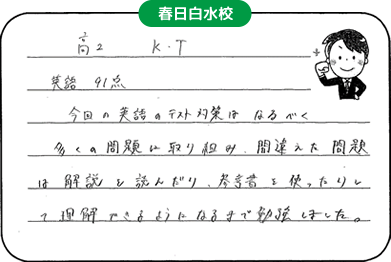 春日白水校
高2 K.T
英語 91点
今回の英語のテスト対策はなるべく
多くの問題に取り組み、間違えた問題
は解説を読んだり、参考書を使ったりし
て理解できるようになるまで勉強しました。